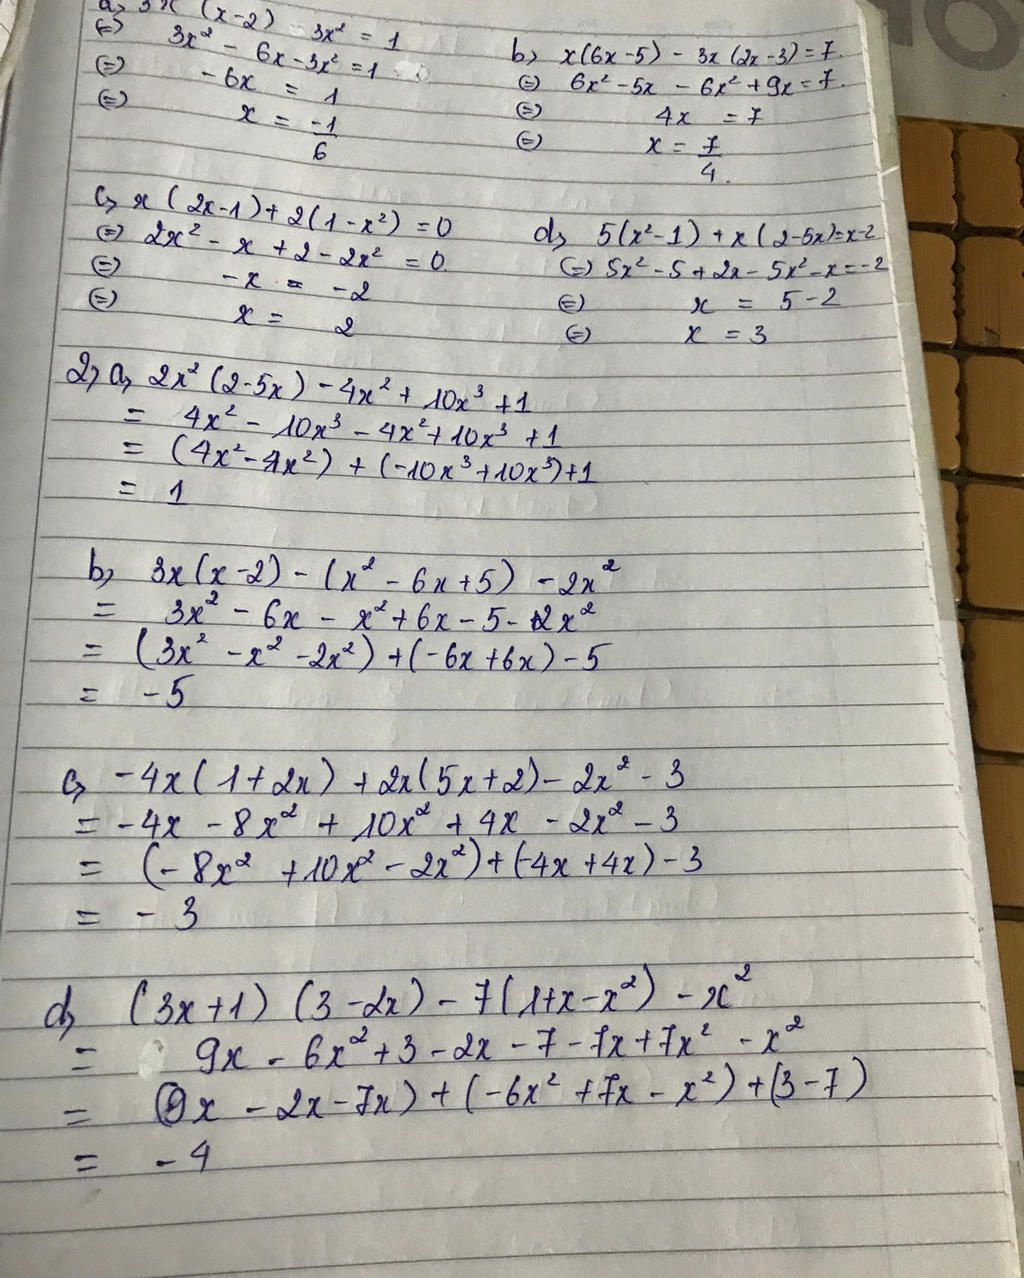 a, 3x (x-2) 3x² = 1
(=) 3x² - 6x - 3x² = 1
(=) -6x = 1
(=) x = -1/6
b, x(6x-5) - 3x(2x-3) = 7.
(=) 6x² - 5x - 6x² + 9x = 7.
(=) 4x = 7
(=) x = 7/4.
c, x(2x-1) + 2(1-x²) = 0
(=) 2x² - x + 2 - 2x² = 0
(=) -x = -2
(=) x = 2
d, 5(x²-1) + x(2-5x) = x-2
(=) 5x² - 5 + 2x - 5x² - x = -2
(=) x = 5 - 2
(=) x = 3
2, a, 2x² (2-5x) - 4x² + 10x³ + 1
= 4x² - 10x³ - 4x² + 10x³ + 1
= (4x² - 4x²) + (-10x³ + 10x³) + 1
= 1
b, 3x(x-2) - (x² - 6x + 5) - 2x²
= 3x² - 6x - x² + 6x - 5 - 2x²
= (3x² - x² - 2x²) + (-6x + 6x) - 5
= -5
c, -4x(1+2x) + 2x(5x+2) - 2x² - 3
= -4x - 8x² + 10x² + 4x - 2x² - 3
= (-8x² + 10x² - 2x²) + (-4x + 4x) - 3
= -3
d, (3x+1) (3-2x) - 7(1+x-x²) - x²
= 9x - 6x² + 3 - 2x - 7 - 7x + 7x² - x²
= (9x - 2x - 7x) + (-6x² + 7x - x²) + (3-7)
= -4